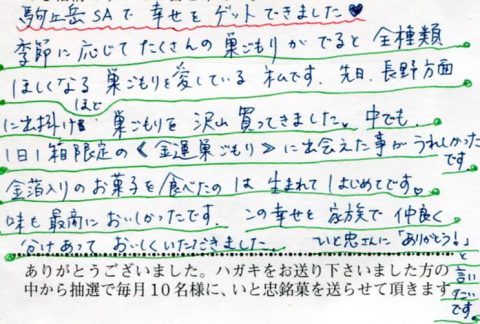 駒ヶ岳SAで幸せをゲットできました♥
季節に応じてたくさんの巣ごもりがでると全種類
ほしくなるほど巣ごもりを愛している私です。先日、長野方面
に出掛け 巣ごもりを沢山買ってきました。中でも、
1日1箱限定の《金運巣ごもり》に出会えた事がうれしかったです
金箔入りのお菓子を食べたのは生まれてはじめてです。
味も最高においしかったです。この幸せを家族で仲良く
分けあっておいしくいただきました。いと忠さんに「ありがとう!」と言いたいです。
ありがとうございました。ハガキをお送り下さいました方の
中から抽選で毎月10名様に、いと忠銘菓を送らせて頂きます